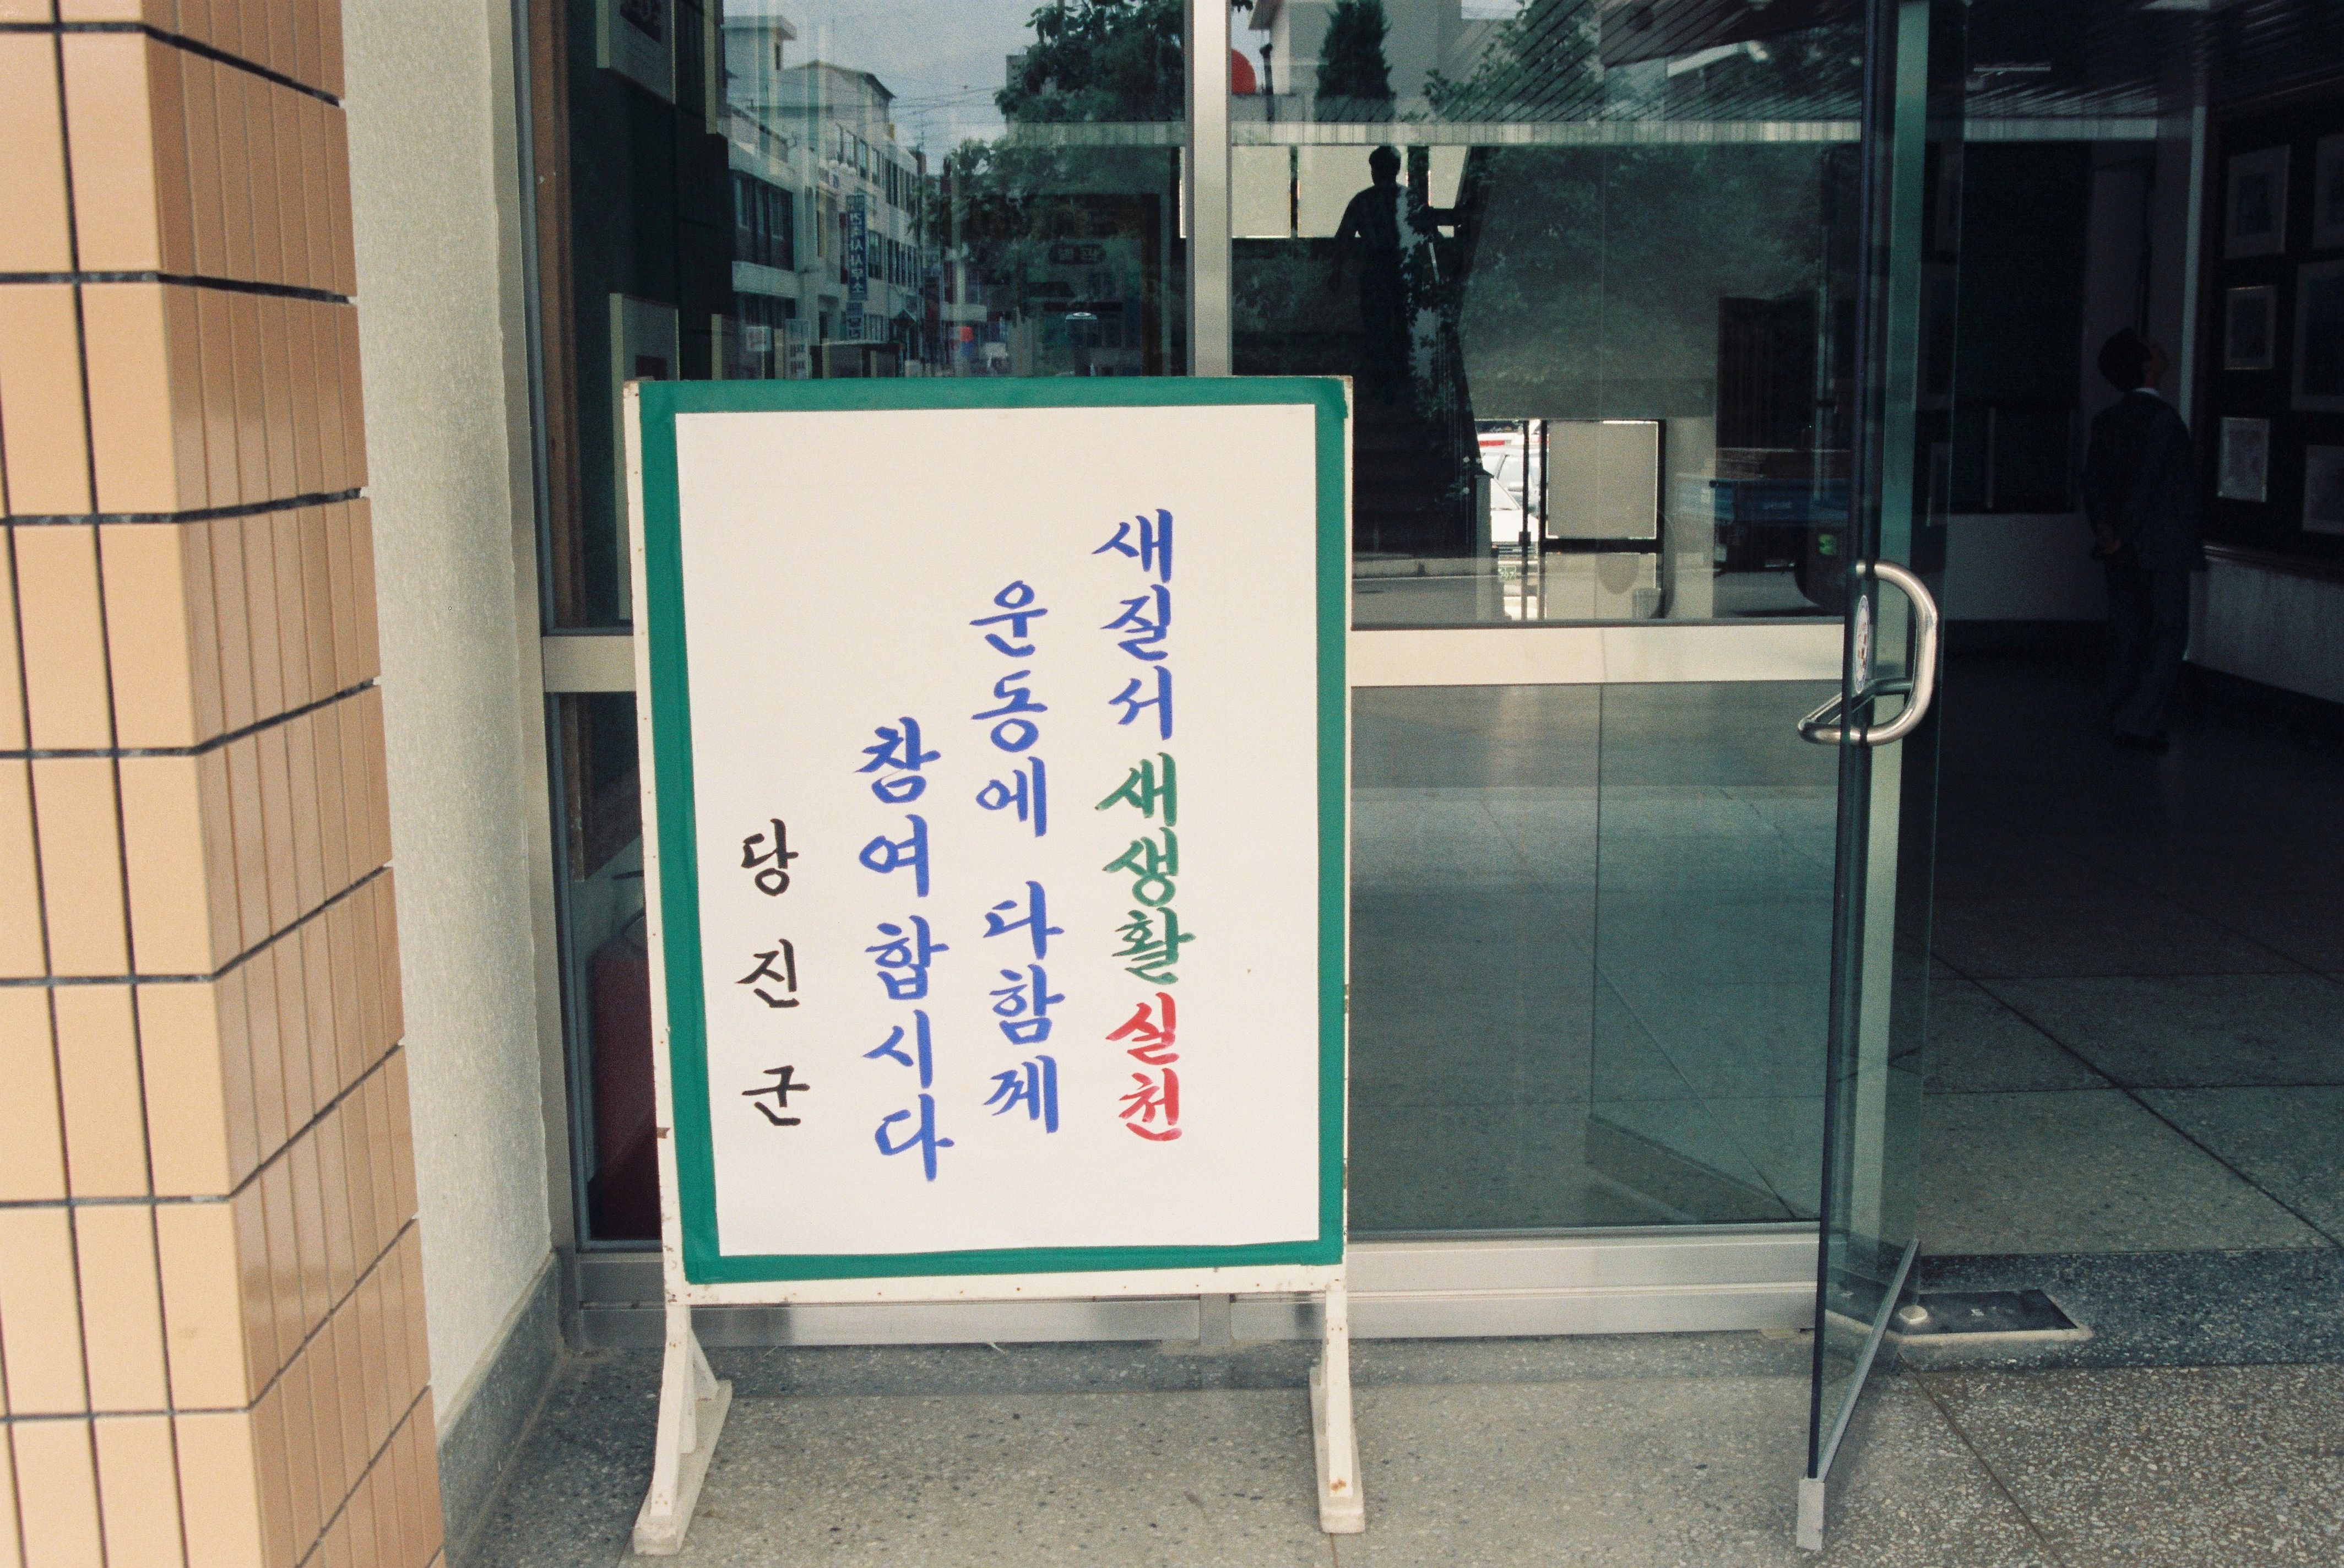 새질서 새생활 실천
운동에 다함께
참여합시다
당진군